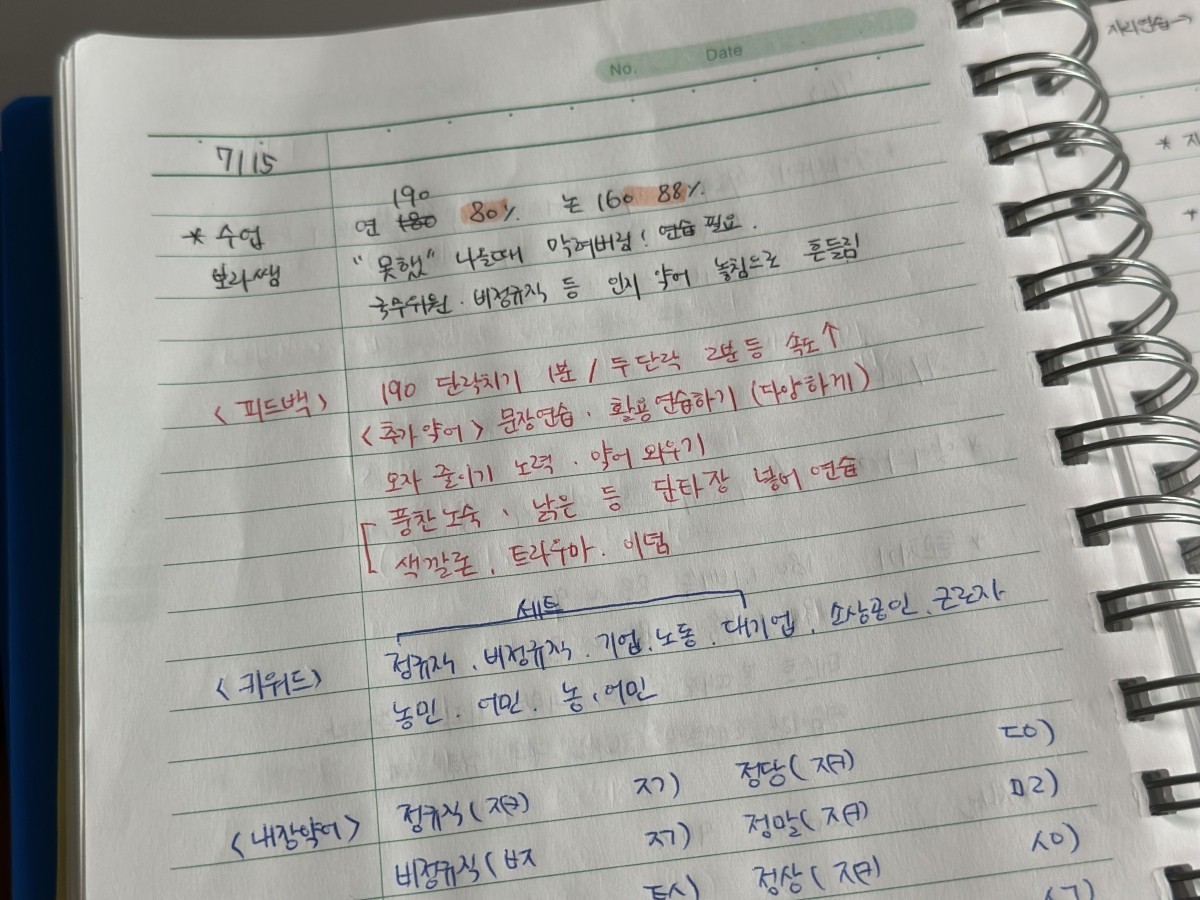 No. Date
자리연습→
7/15
190
* 수업 연 180 80% 논 160 88%
보라쌤 "못했" 나올때 막혀버림! 연습 필요.
국무위원 · 비정규직 등 인지 약어 놓침으로 흔들림
<피드백> 190 단락치기 1분 / 두 단락 2분 등 속도↑
<추가약어> 문장연습 · 활용연습하기 (다양하게)
오자 줄이기 노력 · 약어 외우기
풍찬노숙 、 낡은 등 단타장 넣어 연습
색깔론 、 트라우마 · 이덤
세트
<키워드> 정규직 · 비정규직 · 기업 · 노동 · 대기업 · 소상공인 · 근로자
농민 · 어민 · 농·어민
<내장약어> 정규직( ㅈㄱ) 정당( ㄷㅇ)
비정규직(ㅂㅈ ㅈㄱ) 정말( ㅁㄹ)
정상( ㅅㅇ)